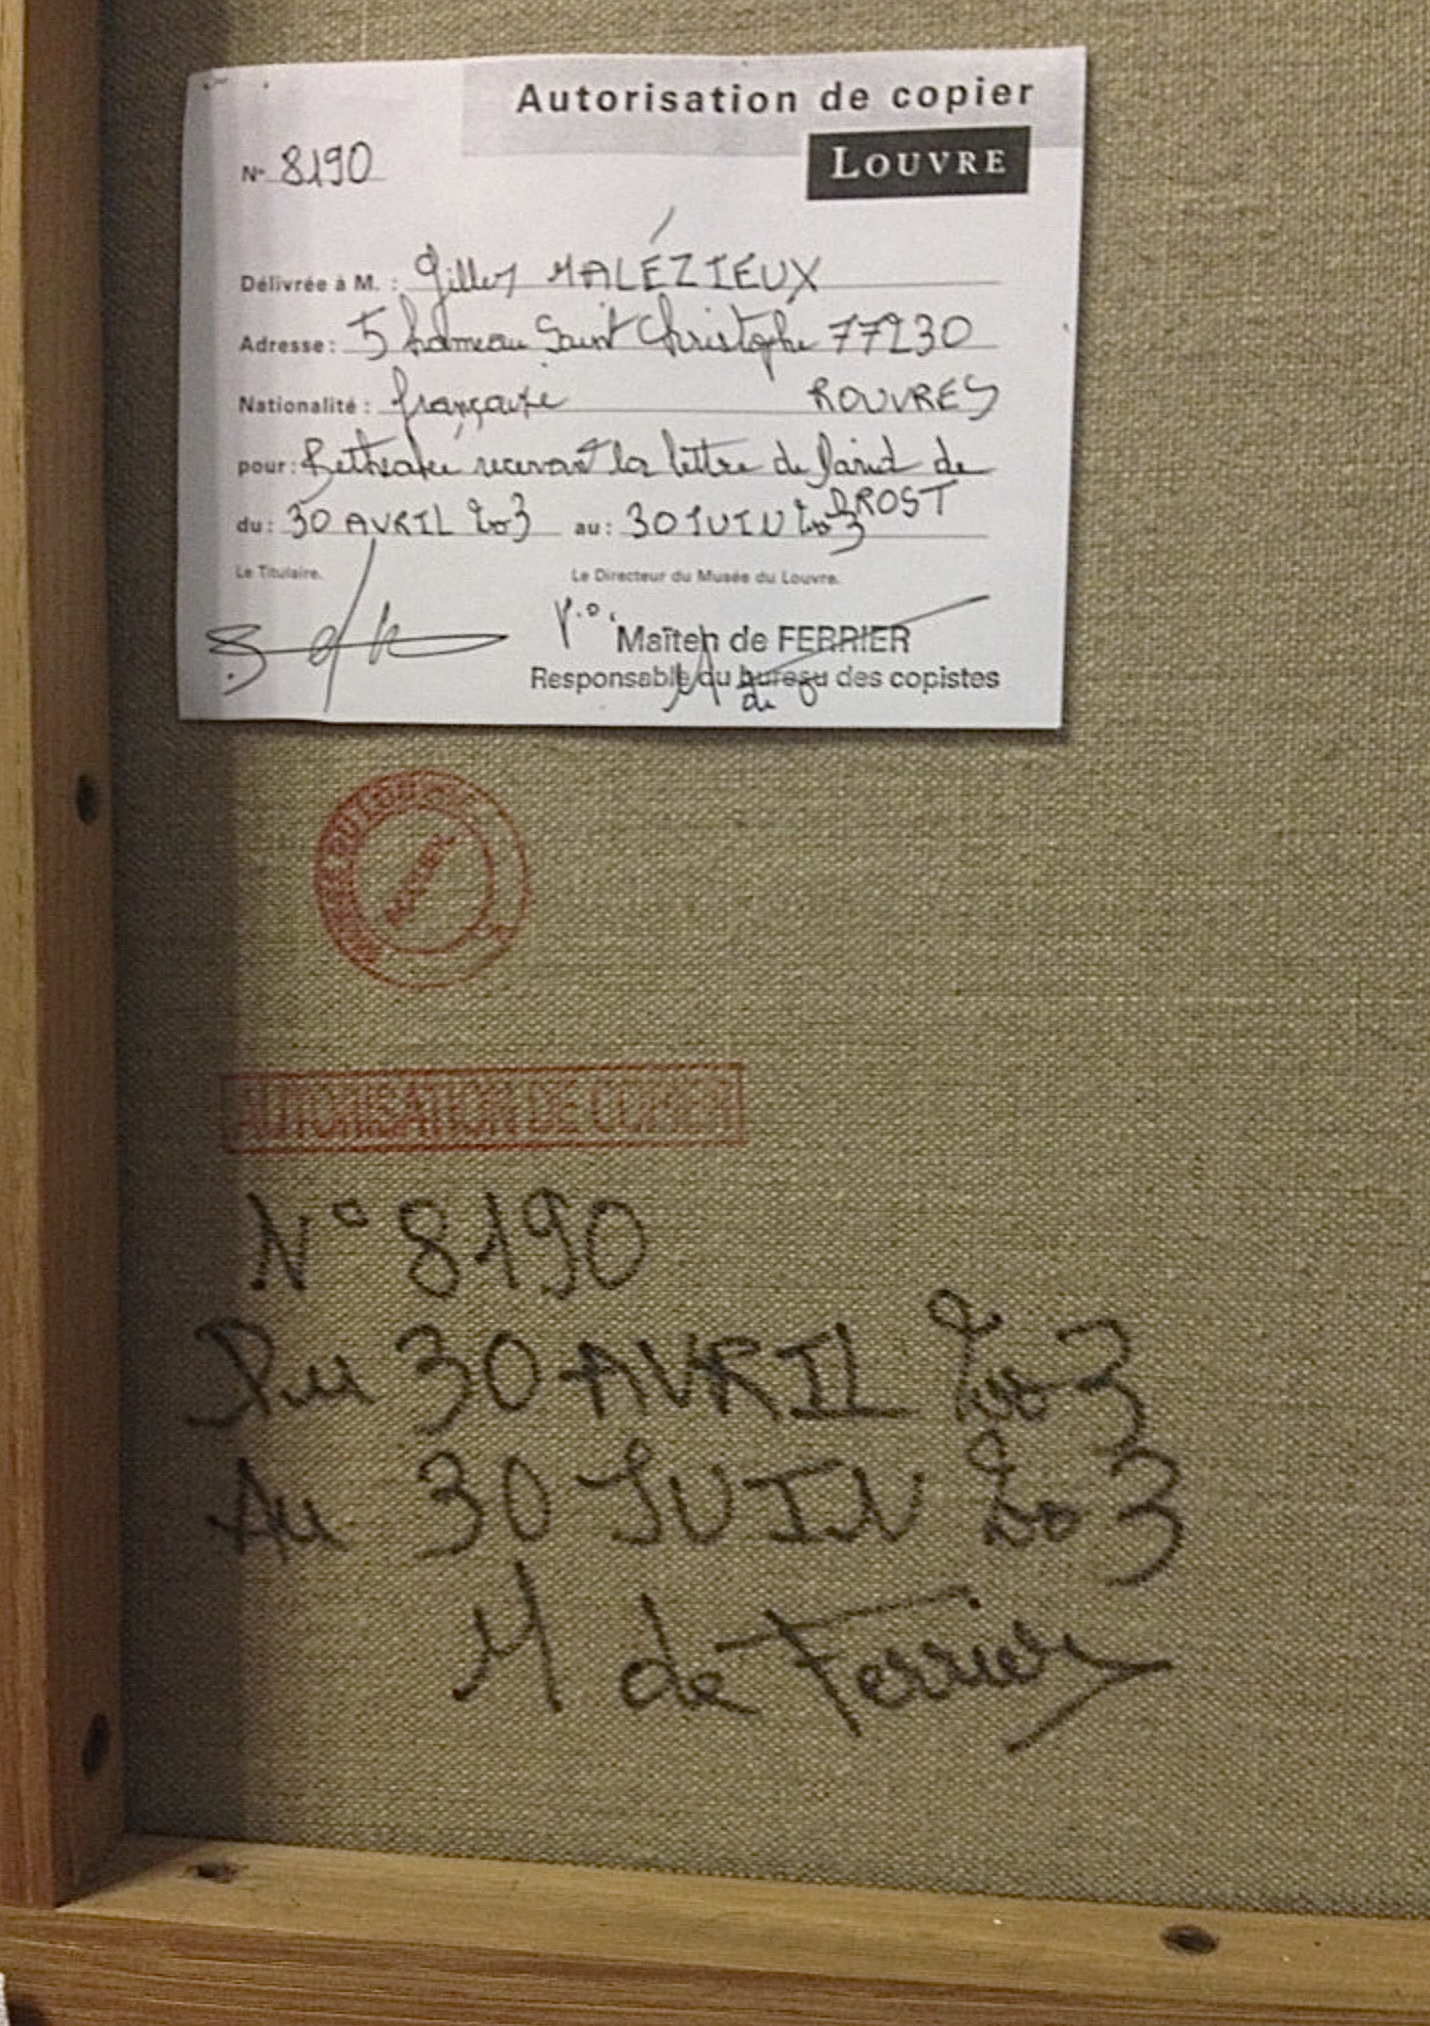 Autorisation de copier
LOUVRE
N° 8190
Délivrée à M. : Gilles MALÉZIEUX
Adresse : 5 hameau Saint Christophe 77230
Nationalité : française ROUVRES
pour : Bethsabée recevant la lettre de David de
DROST
du : 30 AVRIL 2003 au : 30 JUIN 2003
Le Titulaire. Le Directeur du Musée du Louvre.
P.O.
Maïteh de FERRIER
Responsable du bureau des copistes
MUSÉE DU LOUVRE
AUTORISATION DE COPIER
N° 8190
Du 30 AVRIL 2003
Au 30 JUIN 2003
M de Ferrier